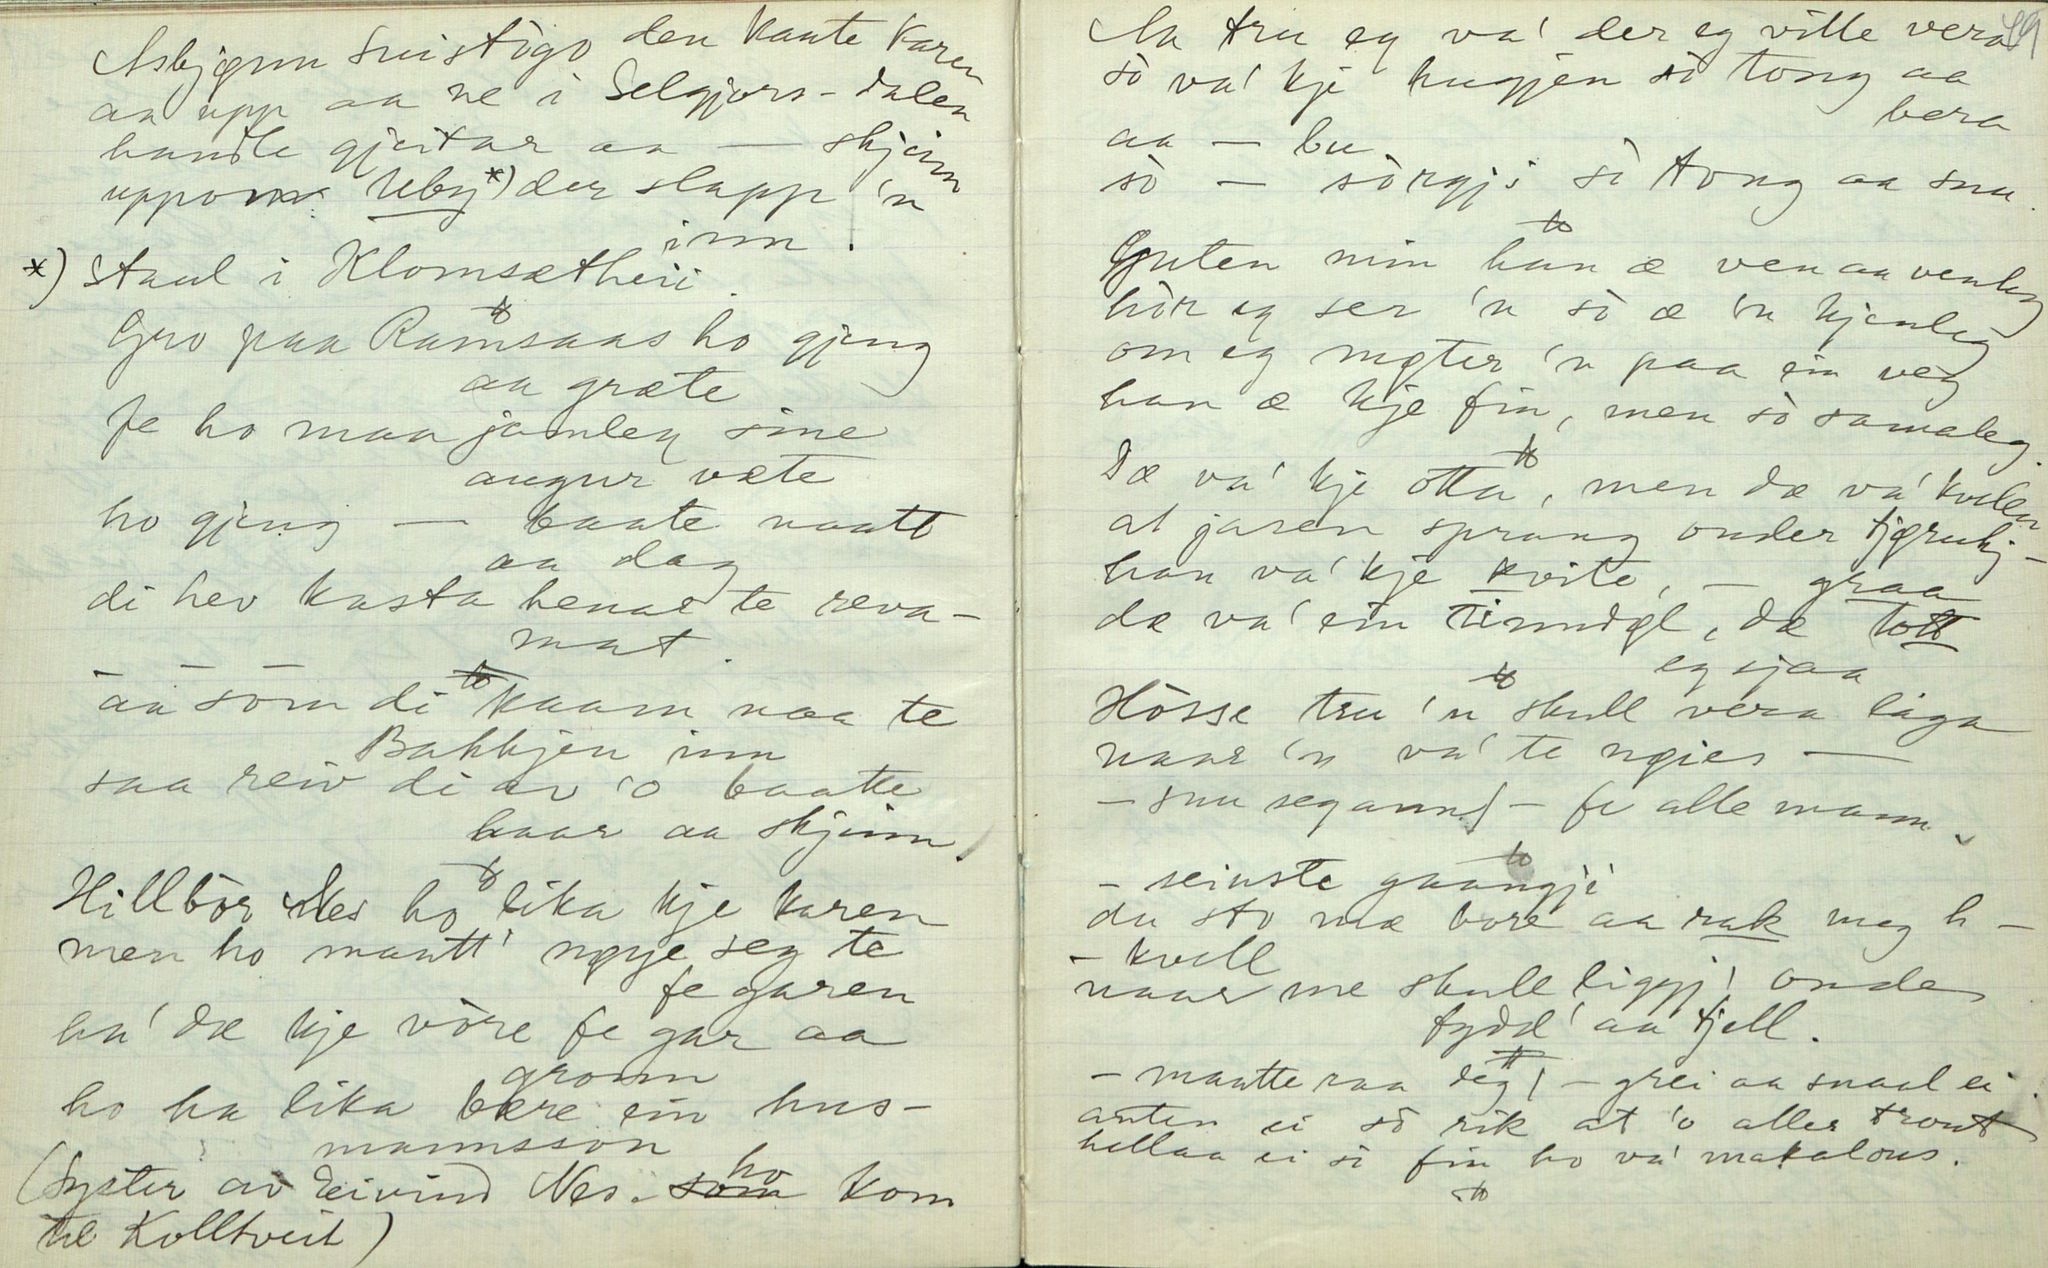 Asbjønn Suistogo den kaate karen
aa upp aa ne i Selgjors-dalen
handle gjeitar aa — skjinn
uppom Uby *) der slapp 'n
inn.
*) Staul i Klomsætheii.
Gro paa Ramsaas ho gjeng
aa græte
fe ho maa jamleg sine
augur væte
ho gjeng — baate naatt
aa dag
di hev kasta henar te reva-
mat.
— aa — som di kaam naa te
Bakkjen inn
saa reiv di av 'o baatte
haar aa skjinn.
Hillbòr Nes ho lika kje karen
men ho maatt' nøye seg te
fe garen
ha' dæ kje vòre fe gar aa
gronn
ho ha lika bære ein hus-
mannsson
(Syster av Eivind Nes. som ho kom
til Kolltveit)
49
Aa tru eg va' der eg ville vera
sò va' kje hugjen sò tong aa
bera
aa — bu
sò — sòrgji sò tong aa snu.
Guten min han æ ven aa venleg
hòr eg ser 'n sò æ 'n kjenleg
om eg møter 'n paa ein veg
han æ kje fin, men sò samaleg.
Dæ va' kje òtta, men dæ va' kvelen
at jasen sprang onder tjørukj-
han va' kje kvite, — graa
dæ va' ein timidøl, dæ tott
eg sjaa
Hòsse tru 'n skull vera laga
naar 'n va' te ngies —
— snu seg ann! — fe alle mann.
— seinste gaangji
du sto mæ bore aa rak meg h-
— kvell
naar me skulle liggji onde
fydd' aa fjell.
— maatte raa deg! — grei aa snaal ei.
anten ei sò rik at 'o aller traut
hellaa ei sò fin ho va' makalaus.